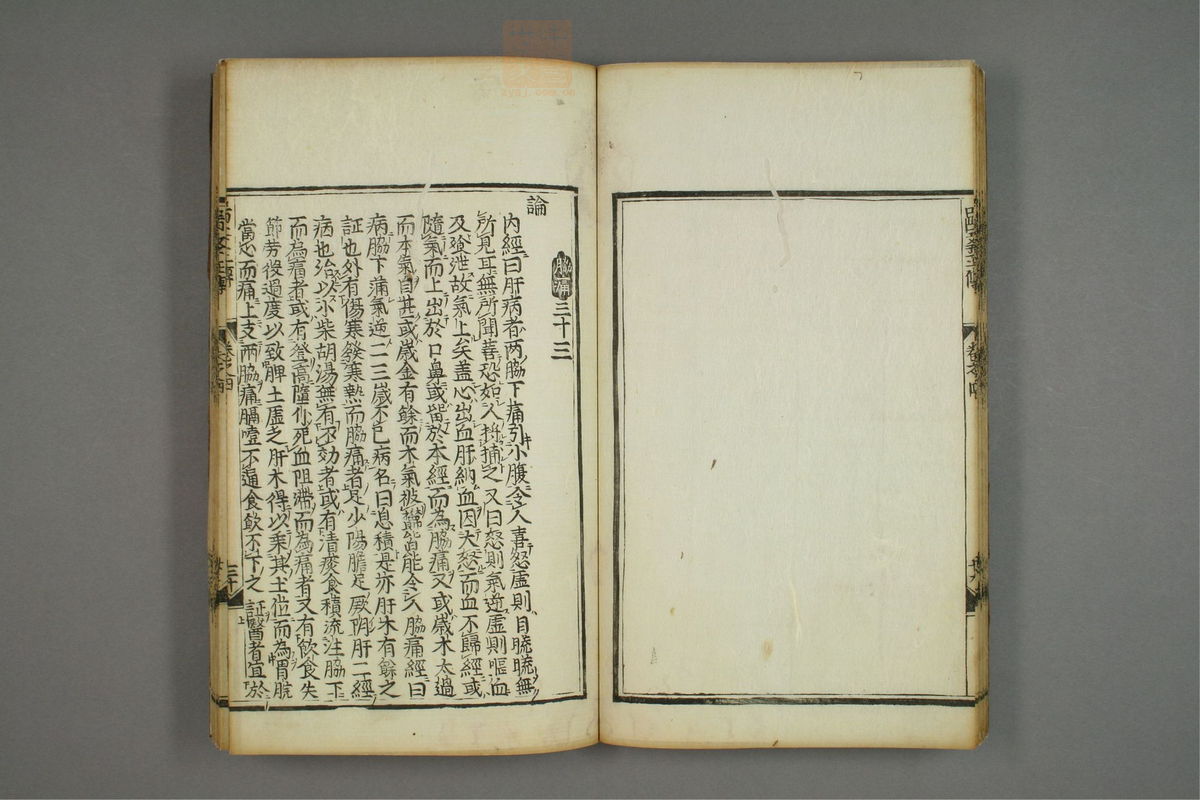 脇痛三十三
論
內經曰肝病者两脇下痛引小腹令人喜怒虛則目𥇀𥇀無
所見耳無所聞善恐如人將捕之又曰怒則氣逆虛則嘔血
及飧泄故氣上矣盖心出血肝納血因大怒而血不歸經或
隨氣而上出於口鼻或畱於本經而為脇痛又或歲木太過
而本氣自甚或歲金有餘而木氣被欝皆能令人脇痛經曰
病脇下蒲氣逆二三歲不已病名曰息積是亦肝木有餘之
証也外有傷寒發寒熱而脇痛者足少陽膽足厥阴肝二經
病也治以小柴胡湯無有不効者或有清痰食積流注脇下
而為痛者或有登高墮仆死血阻滯而為痛者又有飲食失
節劳役過度以致脾土虛乏肝木得以乗其土位而為胃脘
當心而痛上支兩脇痛膈噎不通食飲不下之証醫者宜於
卷之四
三十
卷之四
廿九